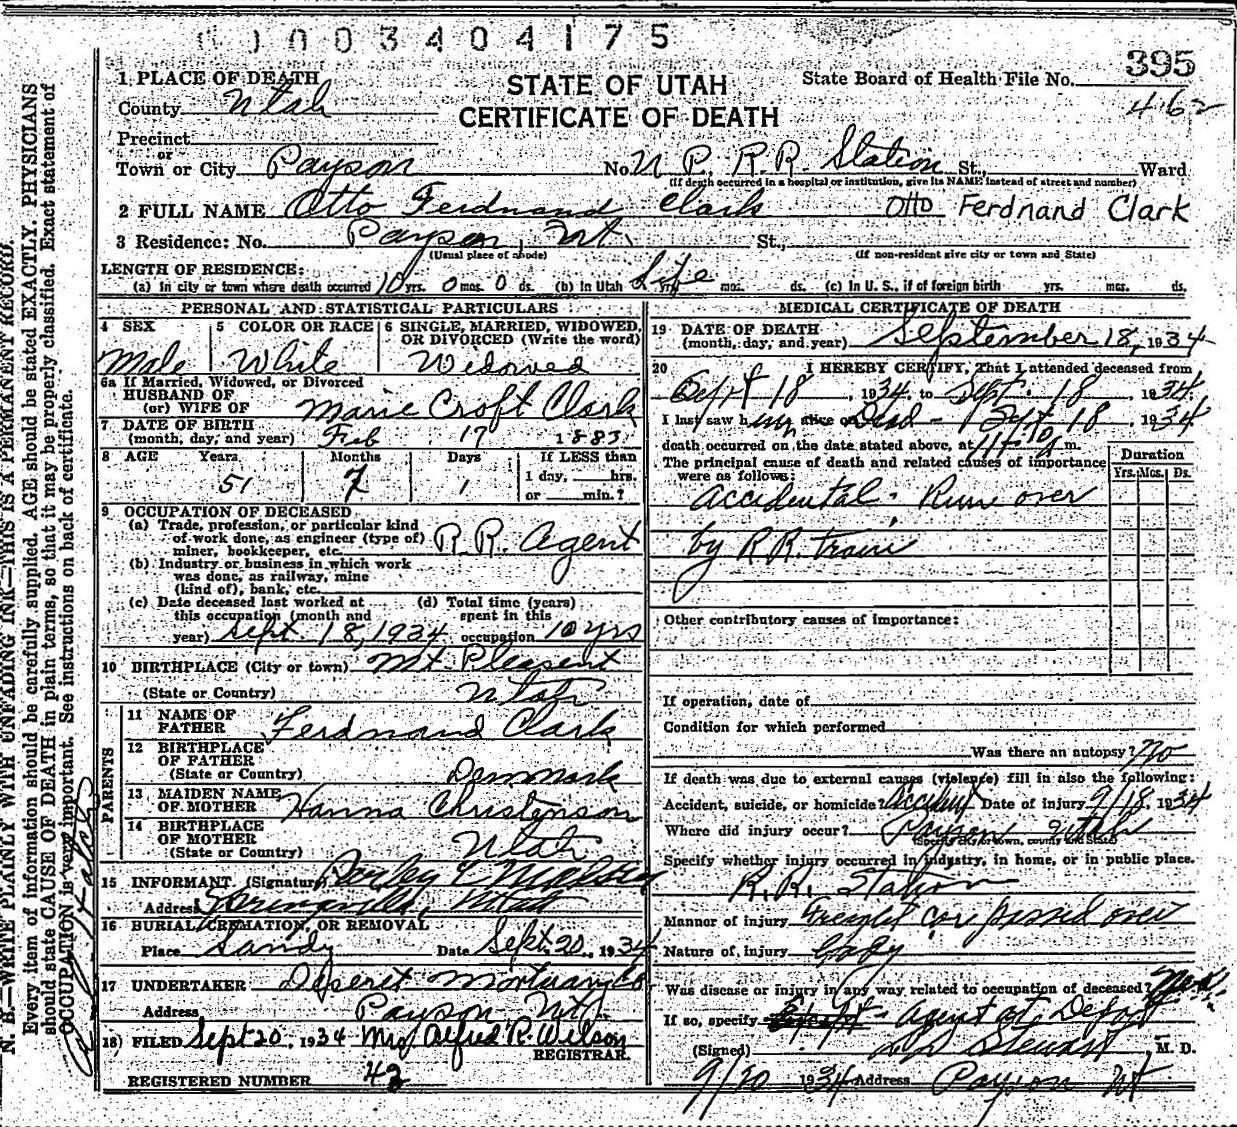 0 1 0 0 3 4 0 4 1 7 5
395
STATE OF UTAH
CERTIFICATE OF DEATH
State Board of Health File No.
462
1 PLACE OF DEATH
County Utah
Precinct
or
Town or City Payson No. U P. R. R. Station St., Ward
(If death occurred in a hospital or institution, give its NAME instead of street and number)
2 FULL NAME Otto Ferdnand Clark Otto Ferdnand Clark
3 Residence: No. Payson, Ut. St.,
(Usual place of abode) (If non-resident give city or town and State)
LENGTH OF RESIDENCE:
(a) In city or town where death occurred 10 yrs. 0 mos. 0 ds. (b) In Utah Life yrs. mos. ds. (c) In U. S., if of foreign birth yrs. mos. ds.
PERSONAL AND STATISTICAL PARTICULARS
4 SEX
Male
5 COLOR OR RACE
White
6 SINGLE, MARRIED, WIDOWED, OR DIVORCED (Write the word)
Widowed
6a If Married, Widowed, or Divorced
HUSBAND OF
(or) WIFE OF Marie Croft Clark
7 DATE OF BIRTH
(month, day, and year) Feb 17 1883
8 AGE Years Months Days If LESS than
51 7 1 1 day, hrs.
or min.?
9 OCCUPATION OF DECEASED
(a) Trade, profession, or particular kind
of work done, as engineer (type of)
miner, bookkeeper, etc. R.R. Agent
(b) Industry or business in which work
was done, as railway, mine
(kind of), bank, etc.
(c) Date deceased last worked at
this occupation (month and
year) Sept. 18, 1934
(d) Total time (years)
spent in this
occupation 10 yrs
10 BIRTHPLACE (City or town) Mt. Pleasent
(State or Country) Utah
PARENTS
11 NAME OF
FATHER Ferdnand Clark
12 BIRTHPLACE
OF FATHER
(State or Country) Denmark
13 MAIDEN NAME
OF MOTHER Hanna Christenson
14 BIRTHPLACE
OF MOTHER
(State or Country) Utah
15 INFORMANT (Signature)
Address Springville, Utah
16 BURIAL, CREMATION, OR REMOVAL
Place Sandy Date Sept 20, 1934
17 UNDERTAKER Deseret Mortuary Co
Address Payson Ut.
18) FILED Sept 20, 1934 Mrs Alfred R. Wilson
REGISTRAR.
REGISTERED NUMBER 43
MEDICAL CERTIFICATE OF DEATH
19 DATE OF DEATH
(month, day, and year) September 18, 1934
20 I HEREBY CERTIFY, That I attended deceased from
Sept 18, 1934 to Sept. 18 1934
I last saw him alive on Dead - Sept 18, 1934
death occurred on the date stated above, at m.
The principal cause of death and related causes of importance
were as follows:
Duration
Yrs. Mos. Ds.
Accidental. Run over
by R.R. train
Other contributory causes of importance:
If operation, date of
Condition for which performed
Was there an autopsy? No
If death was due to external causes (violence) fill in also the following:
Accident, suicide, or homicide? Accident Date of injury 9/18, 1934
Where did injury occur? Payson Utah
(Specify city or town, county and State)
Specify whether injury occurred in industry, in home, or in public place.
R.R. Station
Manner of injury Freight car passed over
Nature of injury body
Was disease or injury in any way related to occupation of deceased?
If so, specify Agent at Depot
(Signed) Stewart, M. D.
9/20 1934 Address Payson Ut
N. B.—WRITE PLAINLY WITH UNFADING INK—THIS IS A PERMANENT RECORD.
Every item of information should be carefully supplied. AGE should be stated EXACTLY. PHYSICIANS
should state CAUSE OF DEATH in plain terms, so that it may be properly classified. Exact statement of
OCCUPATION is very important. See instructions on back of certificate.